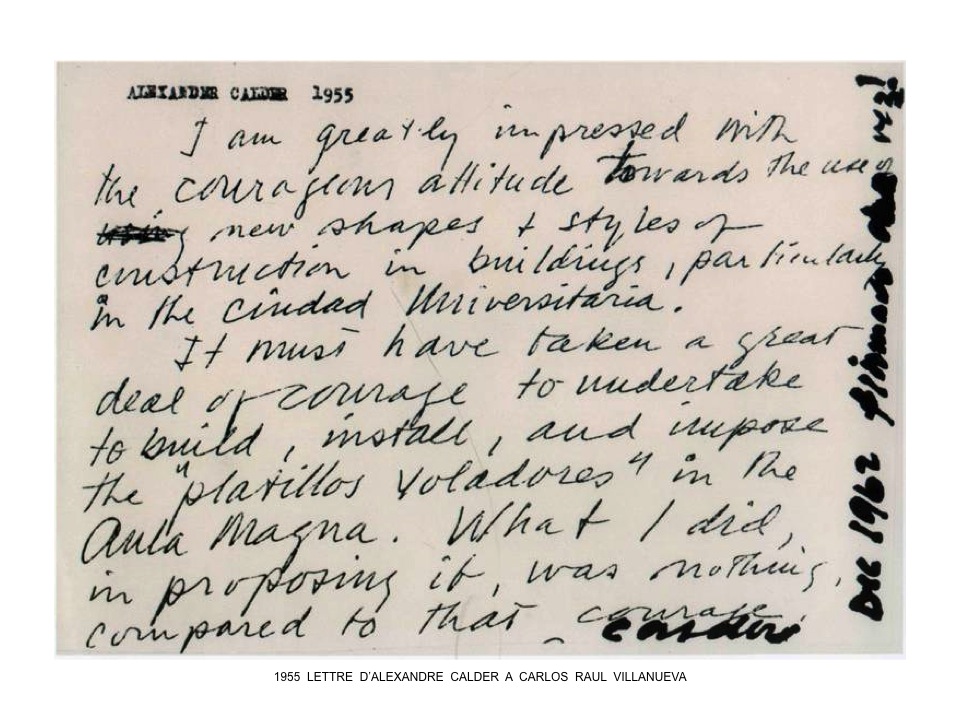 ALEXANDER CALDER 1955
I am greatly impressed with
the courageous attitude towards the use of
using new shapes + styles of
construction in buildings, particularly
in the Ciudad Universitaria.
It must have taken a great
deal of courage to undertake
to build, install, and impose
the "platillos voladores" in the
Aula Magna. What I did,
in proposing it, was nothing,
compared to that courage.
Calder
DEC 1962 firmado dos vez!
1955 LETTRE D'ALEXANDRE CALDER A CARLOS RAUL VILLANUEVA